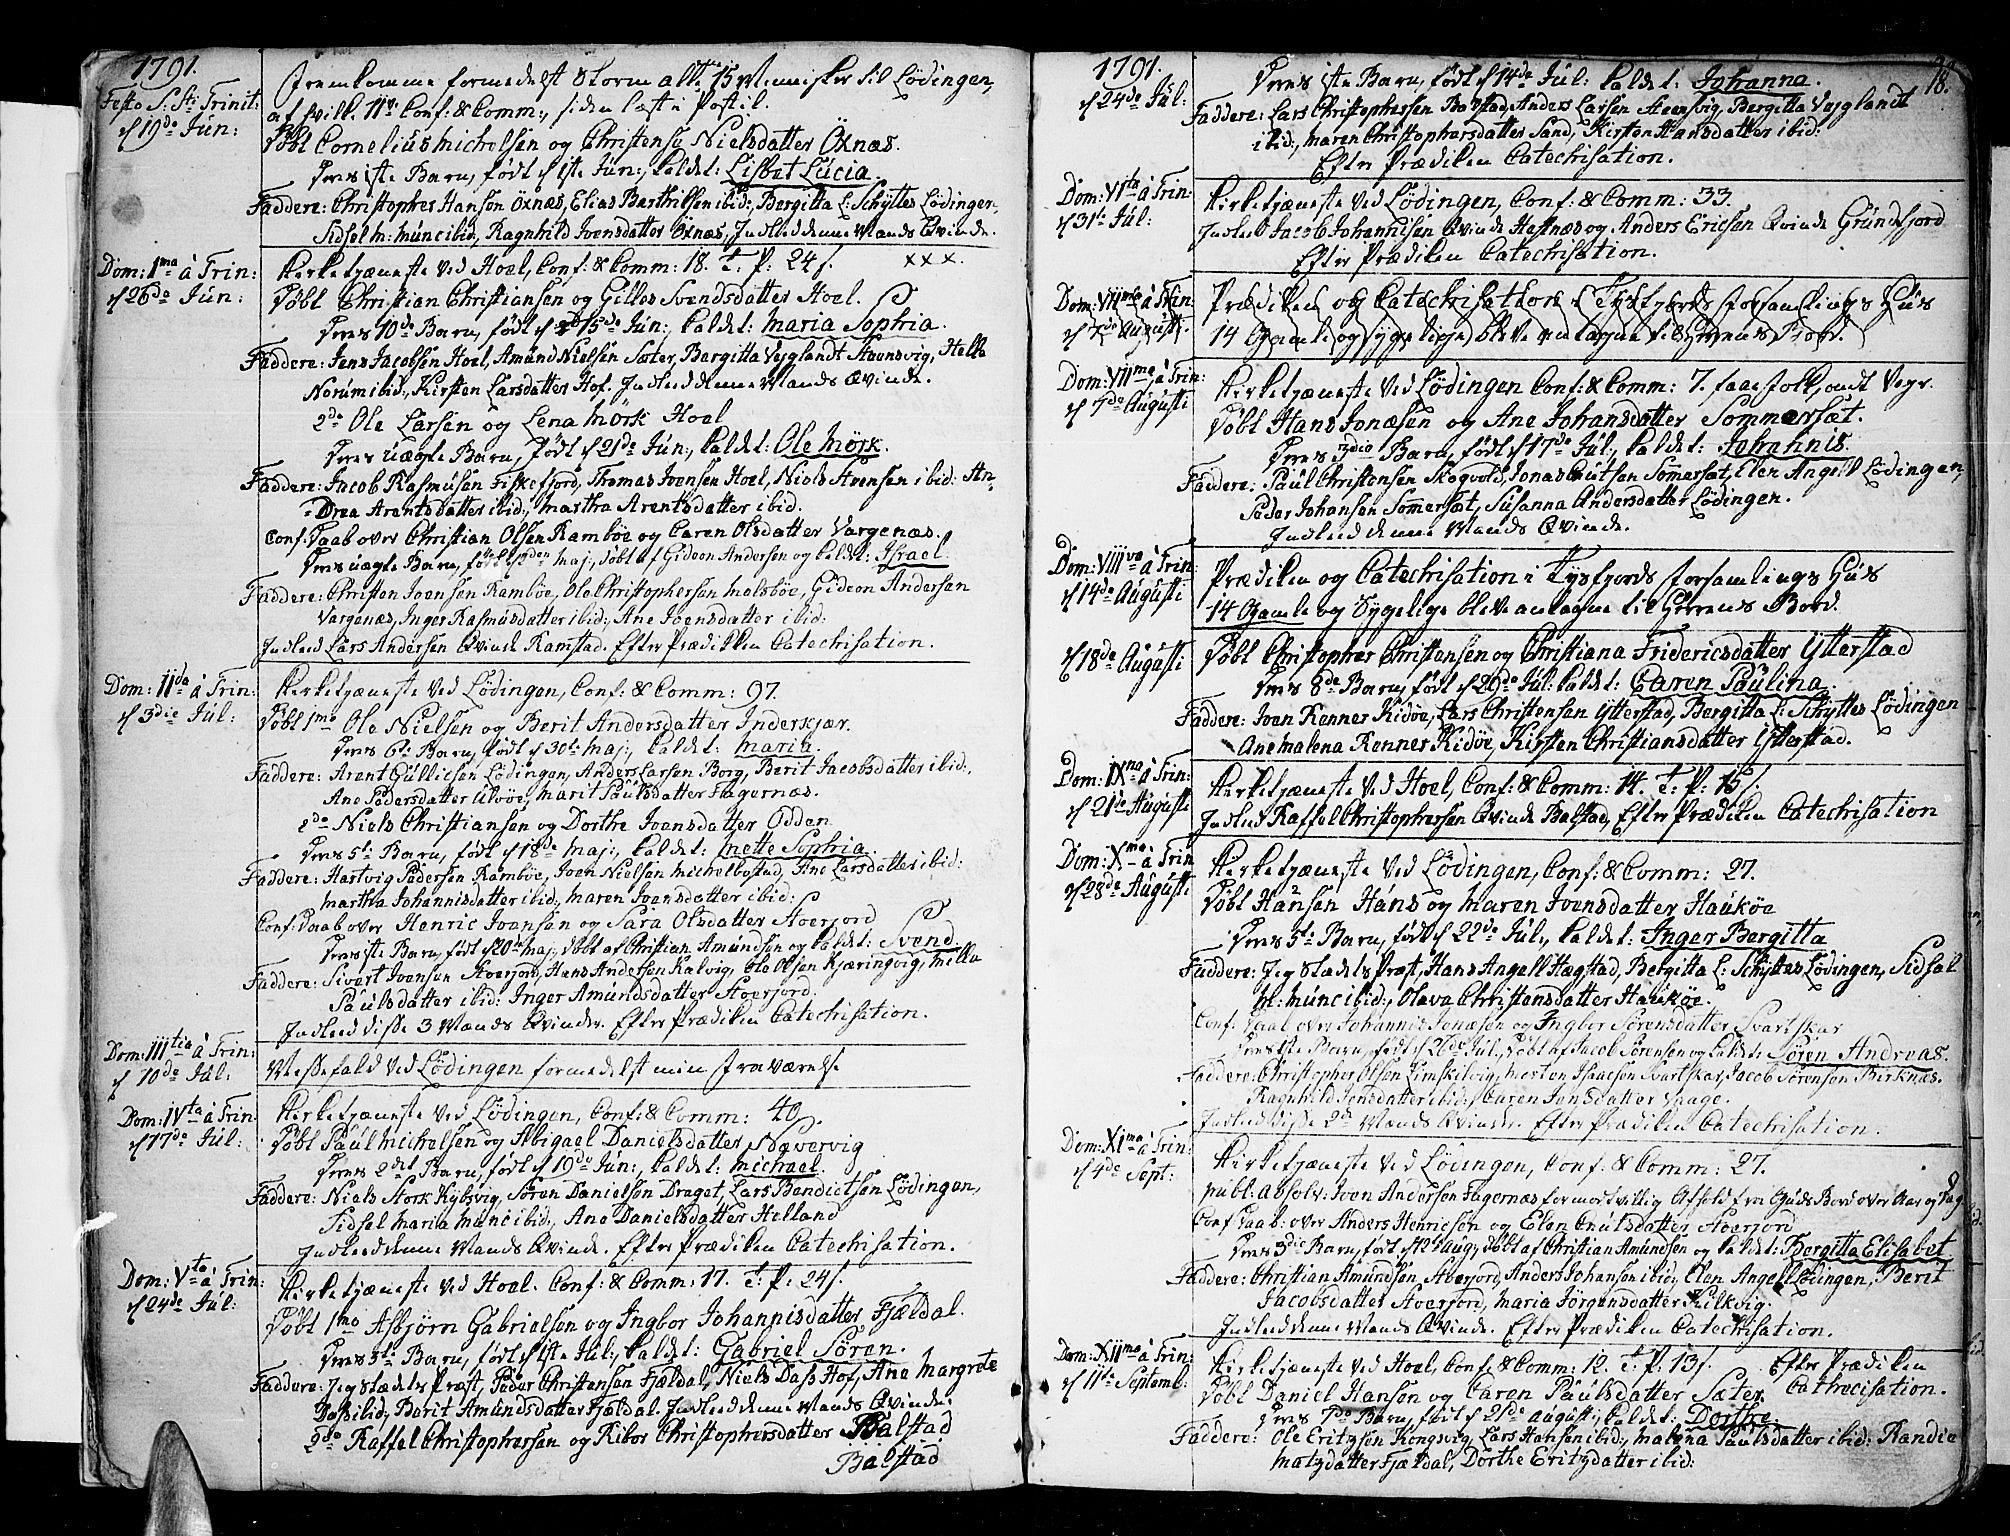 1791.
Festo S: Sti Trinit:
d 19de Jun:
Fremkomme formedelst Storm alt 15 Mennisker til Lödingen,
af hvilk: 11ve Conf: & Comm:, siden læste Postil.
Döbt Cornelius Michelsen og Christense Nielsdatter Öxnæs.
Deres 1ste Barn, född d 1ste Jun:, kaldet: Lisbet Lucia.
Faddere: Christopher Hansön Öxnæs, Elias Barthelsen ibid:, Bergitta L: Schyttes Lödingen,
Sidsel M: Munc ibid:, Ragnhild Ivensdatter Öxnæs, Indleed denne Mands Qvinde.
Dom: 1ma à Trin:
d 26de Jun:
Kirketjæneste ved Hoel, Conf: & Comm: 18. T: P: 24 s. xxx.
Döbt Christian Christiansen og Gilles Svendsdatter Hoel.
Deres 10de Barn, född d 15de Jun:, kaldet: Maria Sophia.
Faddere: Jens Jacobsen Hoel, Amund Nielsen Sæter, Bergitta Vejglandt Steensvig, Helle
Norum ibid:, Kirsten Larsdatter Hof. Indleed denne Mands Qvinde.
2de Ole Larsen og Lena Mörk Hoel
Deres uægte Barn, född d 21de Jun:, kaldet: Ole Mörk.
Faddere: Jacob Rasmusen Fiskefjord, Thomas Ivensen Hoel, Niels Svensen ibid: An-
drea Arentsdatter ibid:, Martha Arentsdatter ibid.
Conf: Daab over Christian Olsen Ramböe og Caren Olsdatter Vargenæs.
Deres uægte Barn, född Maj:, döbt af Gideon Andersen og kaldet: Israel.
Faddere: Christen Ivensen Ramböe, Ole Christophersen Molsböe, Gideon Andersen
Vargenæs, Inger Rasmusdatter ibid:, Ane Ivensdatter ibid:
Indleed Lars Andersen Qvinde Ramstad. Efter Prædikken Catechisation.
Dom: IIda à Trin:
d 3die Jul:
Kirketjæneste ved Lödingen, Conf: & Comm: 97.
Döbt 1mo Ole Nielsen og Berit Andersdatter Inderkjær.
Deres 6te Barn, född d 30te Maj:, kaldet: Maria.
Faddere: Arent Gullicsen Lödingen, Anders Larsen Borg, Berit Jacobsdatter ibid:,
Ane Pedersdatter Ulvöe, Marit Paulsdatter Fagernæs.
2do Niels Christiansen og Dorthe Ivensdatter Odden
Deres 5te Barn, född d 18de Maj:, kaldet: Mette Sophia.
Faddere: Hartvig Pedersen Ramböe, Iven Nielsen Michelbostad, Ane Larsdatter ibid:
Martha Johannisdatter ibid:, Maren Ivensdatter ibid:
Conf: Daab over Henric Ivensen og Sara Olsdatter Stoerjord
Deres 1ste Barn, född d 20de Maj:, döbt af Christian Amundsen og kaldet: Svend
Faddere: Sivert Ivensen Stoerjord, Hans Andersen Kalvig, Ole Olsen Kjæringvig, Mille
Paulsdatter ibid: Inger Amundsdatter Stoerjord:
Indleed disse 3 Mænds Qvinder. Efter Prædiken Catechisation.
Dom: IIItia à Trin:
d 10de Jul:
Messefald ved Lödingen formedelst min Fraværelse
Dom: IVta à Trin:
d 17de Jul:
Kirketjæneste ved Lödingen, Conf: & Comm: 40.
Döbt Paul Michelsen og Abigael Danielsdatter Næververvig
Deres 2det Barn, född d 19de Jun:, kaldet: Michael.
Faddere: Niels Stork Kybsvig, Sören Danielsen Draget, Lars Bendictsen Lödingen,
Sidsel Maria Munc ibid:, Ane Danielsdatter Helland
Indleed denne Mands Qvinde. Efter Prædiken Catechisation.
Dom: Vta à Trin:
d 24de Jul:
Kirketjæneste ved Hoel. Conf: & Comm: 17. T: P: 24 s.
Döbt 1mo Asbjörn Gabrielsen og Ingbor Johannisdatter Fjældal.
Deres 5te Barn, född d 1ste Jul:, kaldet: Gabriel Sören.
Faddere: Jeg Stædets Præst, Peder Christensen Fjældal, Niels Dass Hof, Ane Margrete
Dass ibid:, Berit Amundsdatter Fjældal. Indleed denne Mands Qvinde.
2do Raffel Christophersen og Ribor Christophersdatter Balstad
Balstad
18.
1791.
d 24de Jul:
Deres 1ste Barn, född d 14de Jul: kaldet: Johanna.
Faddere: Lars Christophersen Balstad, Anders Larsen Steensvig, Bergitta Vejglandt
ibid:, Maren Christophersdatter Sand, Kirsten Hansdatter ibid:
Efter Prædiken Catechisation.
Dom: VIta à Trin:
d 31te Jul:
Kirketjæneste ved Lödingen, Conf: & Comm: 33.
Indleed Jacob Johannisen Qvinde Hafnæs og Anders Ericsen Qvinde Grundfjord
Efter Prædiken Catechisation.
Dom: VIIma à Trin:
d 7de Augusti.
Prædiken og Catechisation i Tysfjords Forsamlings Huus
14 Gamle og Sygelige bleve antagne til Herrens Bord.
Dom: VIIma à Trin:
d 7de Augusti
Kirketjæneste ved Lödingen Conf: & Comm: 7. faae Folk, ondt Vejr.
Döbt Hans Jonæsen og Ane Johansdatter Sommersæt.
Deres 3dio Barn, född d 17de Jul:, kaldet: Johannis.
Faddere: Paul Christensen Skogvold, Jonas Cnutsen Sommersæt, Elen Angell Lödingen,
Peder Johansen Sommersæt, Susanna Andersdatter Lödingen.
Indleed denne Mands Qvinde.
Dom: VIIIva à Trin:
d 14de Augusti
Prædiken og Catechisation i Tysfjords Forsamlings Huus
14 Gamle og Sygelige bleve antagne til Herrens Bord.
d 18de Augusti
Döbt Christopher Christensen og Christiana Fridericsdatter Ytterstad
Deres 8de Barn, född d 29de Jul: kaldet: Caren Paulina.
Faddere: Iven Renner Kidöe, Lars Christensen Ytterstad, Bergitta L: Schyttes Lödingen
Ane Malena Renner Kidöe, Kirsten Christiansdatter Ytterstad.
Dom: IXna à Trin:
d 21de Augusti
Kirketjæneste ved Hoel, Conf: & Comm: 14. T: P: 15 s.
Indleed Raffel Christophersen Qvinde Balstad, Efter Prædiken Catechisation
Dom: Xma à Trin
d 28de Augusti
Kirketjæneste ved Lödingen, Conf: & Comm: 27.
Döbt Hansen Hans og Maren Ivensdatter Hauköe
Deres 5te Barn, född d 22de Jul:, kaldet: Inger Bergitta
Faddere: Jeg Stædets Præst, Hans Angell Hægstad, Bergitta L: Schyttes Lödingen, Sidsel
M: Munc ibid:, Olava Christensdatter Hauköe.
Conf: Daab over Johannis Jonæsen og Ingbor Sörensdatter Svartskar
Deres 1ste Barn, född d 26de Jul:, döbt af Jacob Sörensen og kaldet: Sören Andreas.
Faddere: Christopher Olsen Limskilvig, Morten Isaacsen Svartskar, Jacob Sörensön Birknæs.
Ragnhild Jensdatter ibid:, Caren Jensdatter Vaage.
Indleed disse 2de Mænds Qvinder. Efter Prædiken Catechisation.
Dom: XIma à Trin:
d 4de Sept:
Kirketjæneste ved Lödingen, Conf: & Comm: 27.
publ: absolv: Iven Andersen Fagernæs for modvillig Afhold fra Guds Bord over Aar og Dag
Conf: Daab: over Anders Henricsön og Elen Cnutsdatter Stoerjord
Deres 3die Barn, född d 12te Aug:, döbt af Christian Amundsen og kaldet: Bergitta Elisabet
Faddere: Christian Amundsön Stoerjord, Anders Johansen ibid:, Elen Angell Lödingen, Berit
Jacobsdatter Stoerjord, Maria Jörgensdatter Kilkvig.
Indleed denne Mands Qvinde. Efter Prædiken Catechisation.
Dom: XIIma à Trin:
d 11te Septemb:
Kirketjæneste ved Hoel, Conf: & Comm: 12. T: P: 13 s. Efter Prædiken
Döbt Daniel Hansen og Caren Paulsdatter Sæter. Cathecisation.
Deres 7de Barn, född d 21de Augusti, kaldet: Dorthe.
Faddere: Ole Eritzsen Kongsvig, Lars Hansen ibid:, Malena Paulsdatter ibid: Randie
Matzdatter Fjældal, Dorthe Eritzdatter ibid: